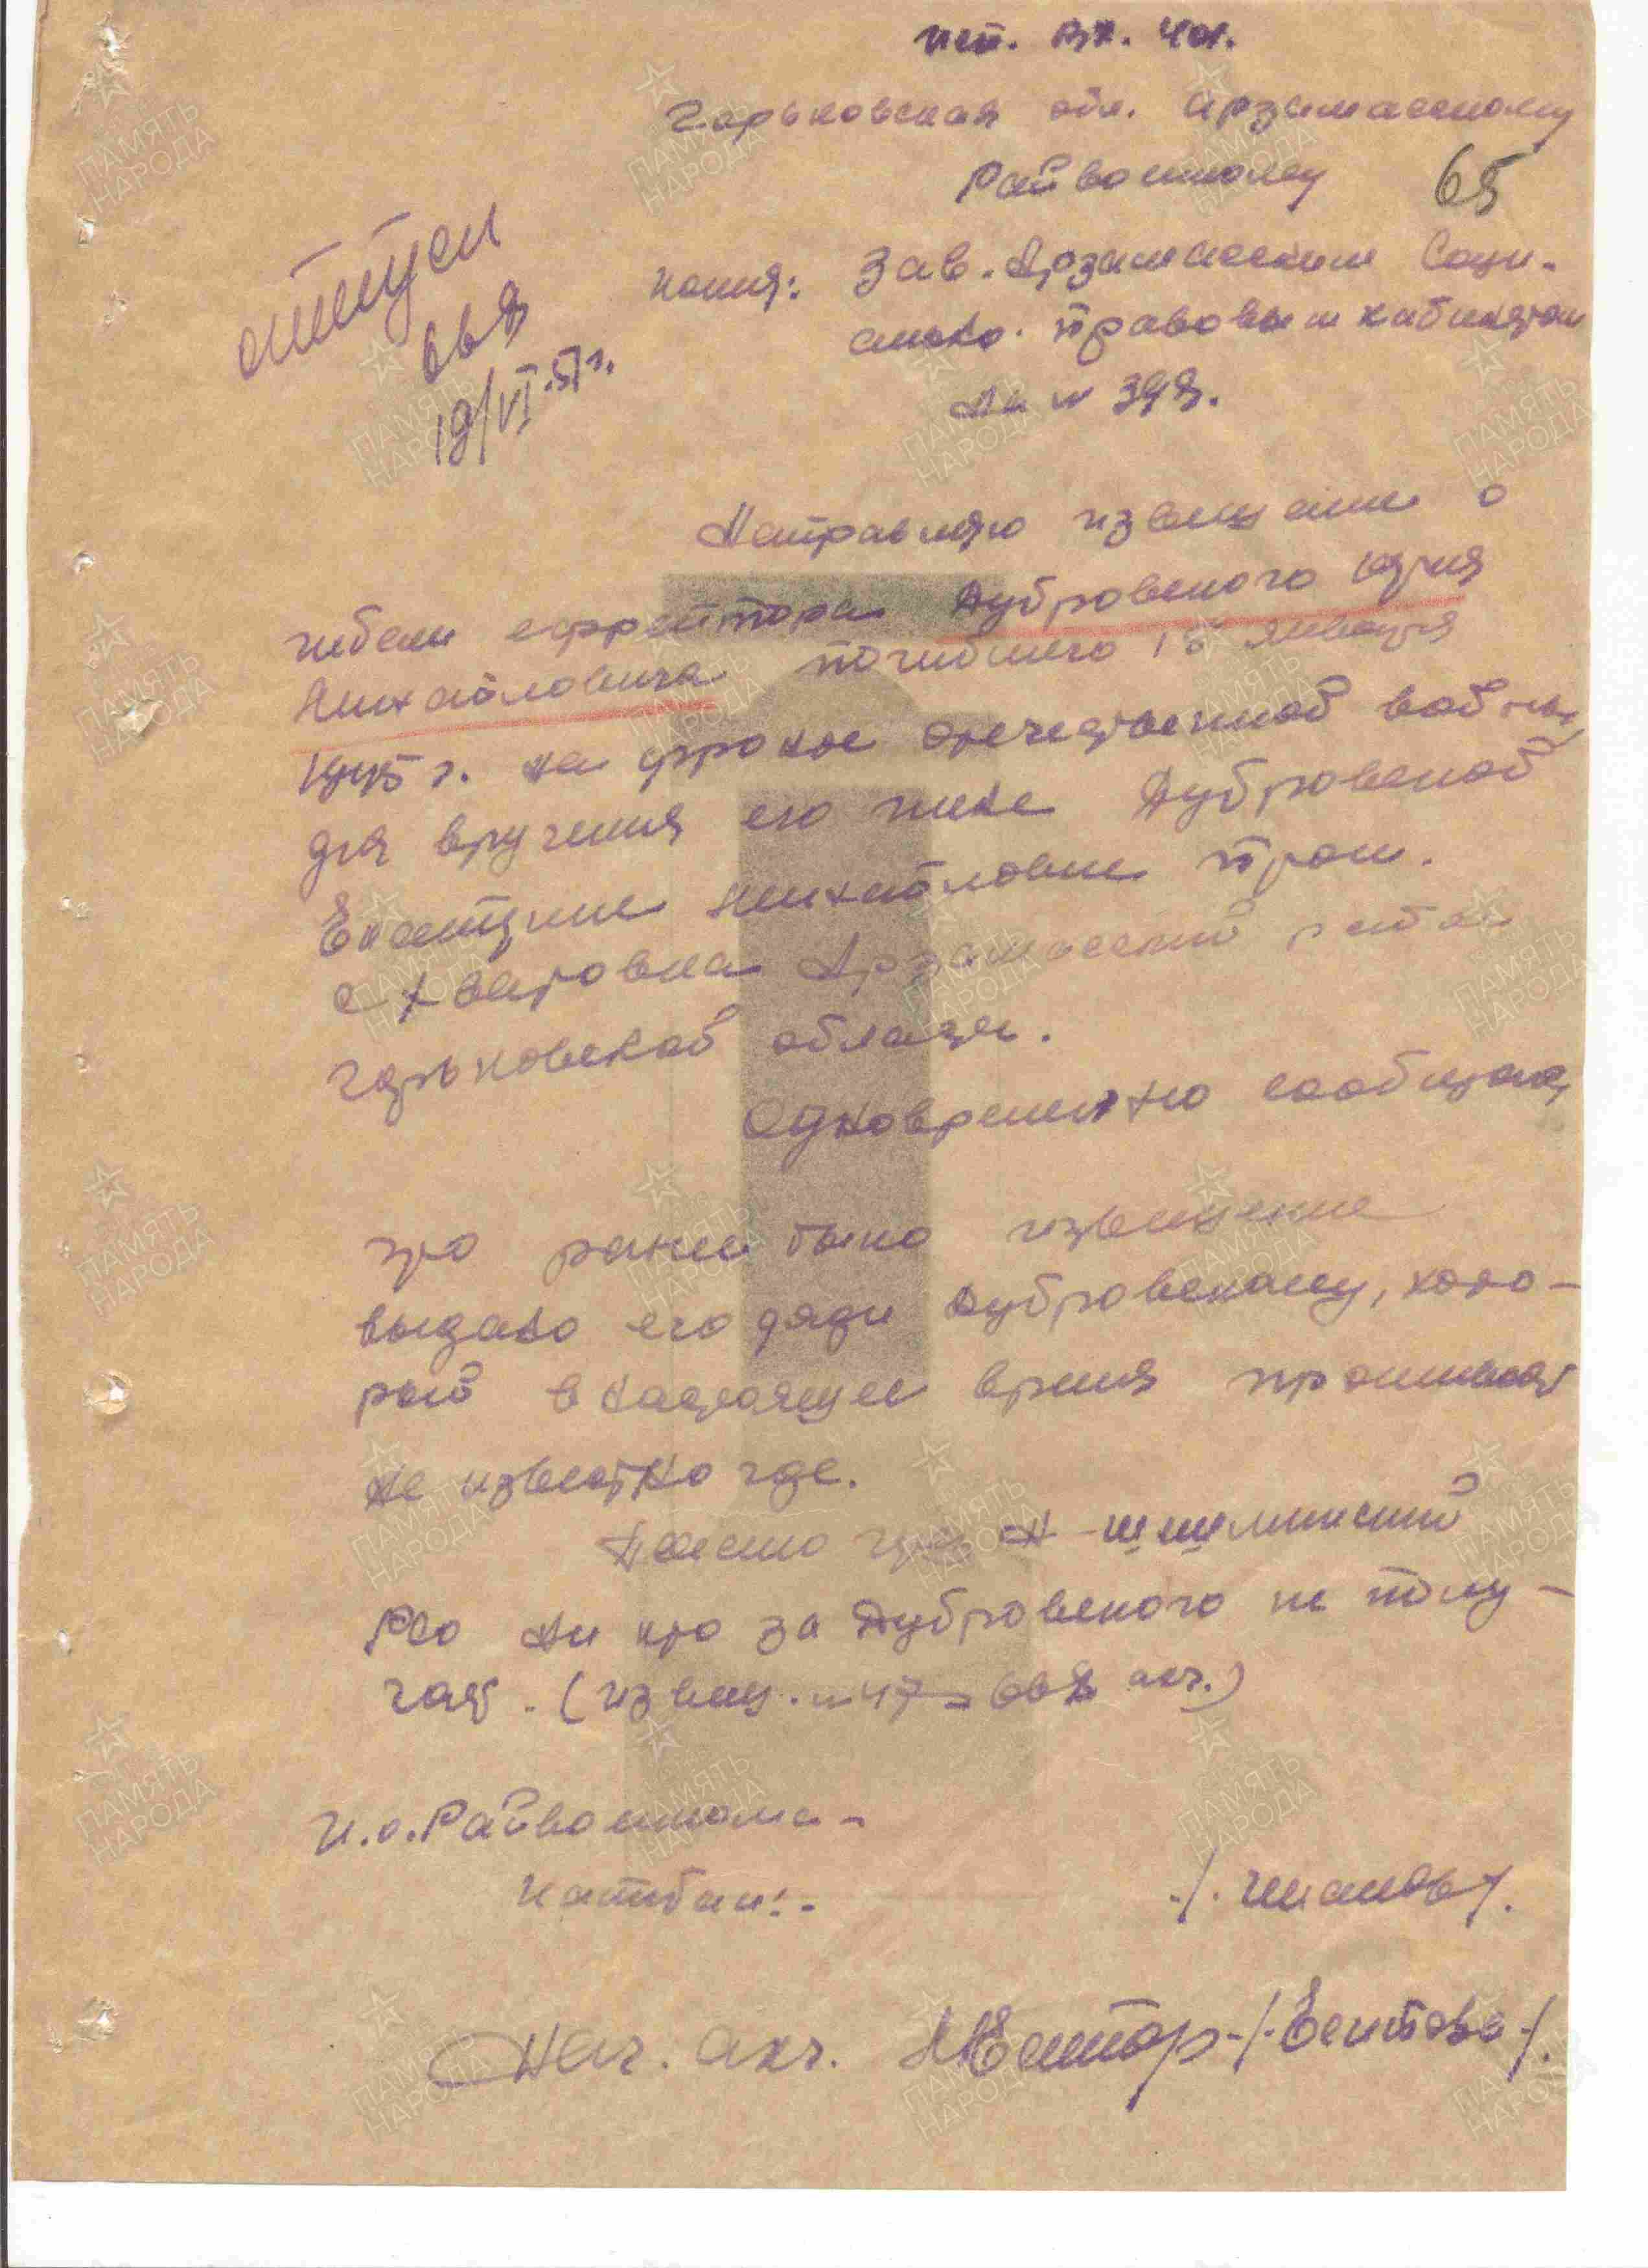 исп. вх. 401.
Горьковская обл. Арзамасскому
Райвоенкому 65
копия: Зав. Арзамаским Соци-
ально. правовым кабинетом
На № 398.
отпуск
668
19/VI-51 г.
Направляю извещение о
гибели ефрейтора Дубровского Юрия
Михайловича погибшего 15 января
1945 г. на фронте отечественной войны
для вручения его тете Дубровской
Екатерине Михайловне прож.
с Хватовка Арзамасский район
Горьковской области.
Одновременно сообщаю,
что ранее было извещение
выдано его дяди Дубровскому, кото-
рый в настоящее время проживает
не известно где.
Пенсию
РСО ни кто за Дубровского не полу-
чает. (извещ. №
И.о. Райвоенкома -
Капитан: -
Нач. адм. /Еситова/.
ПАМЯТЬ
НАРОДА